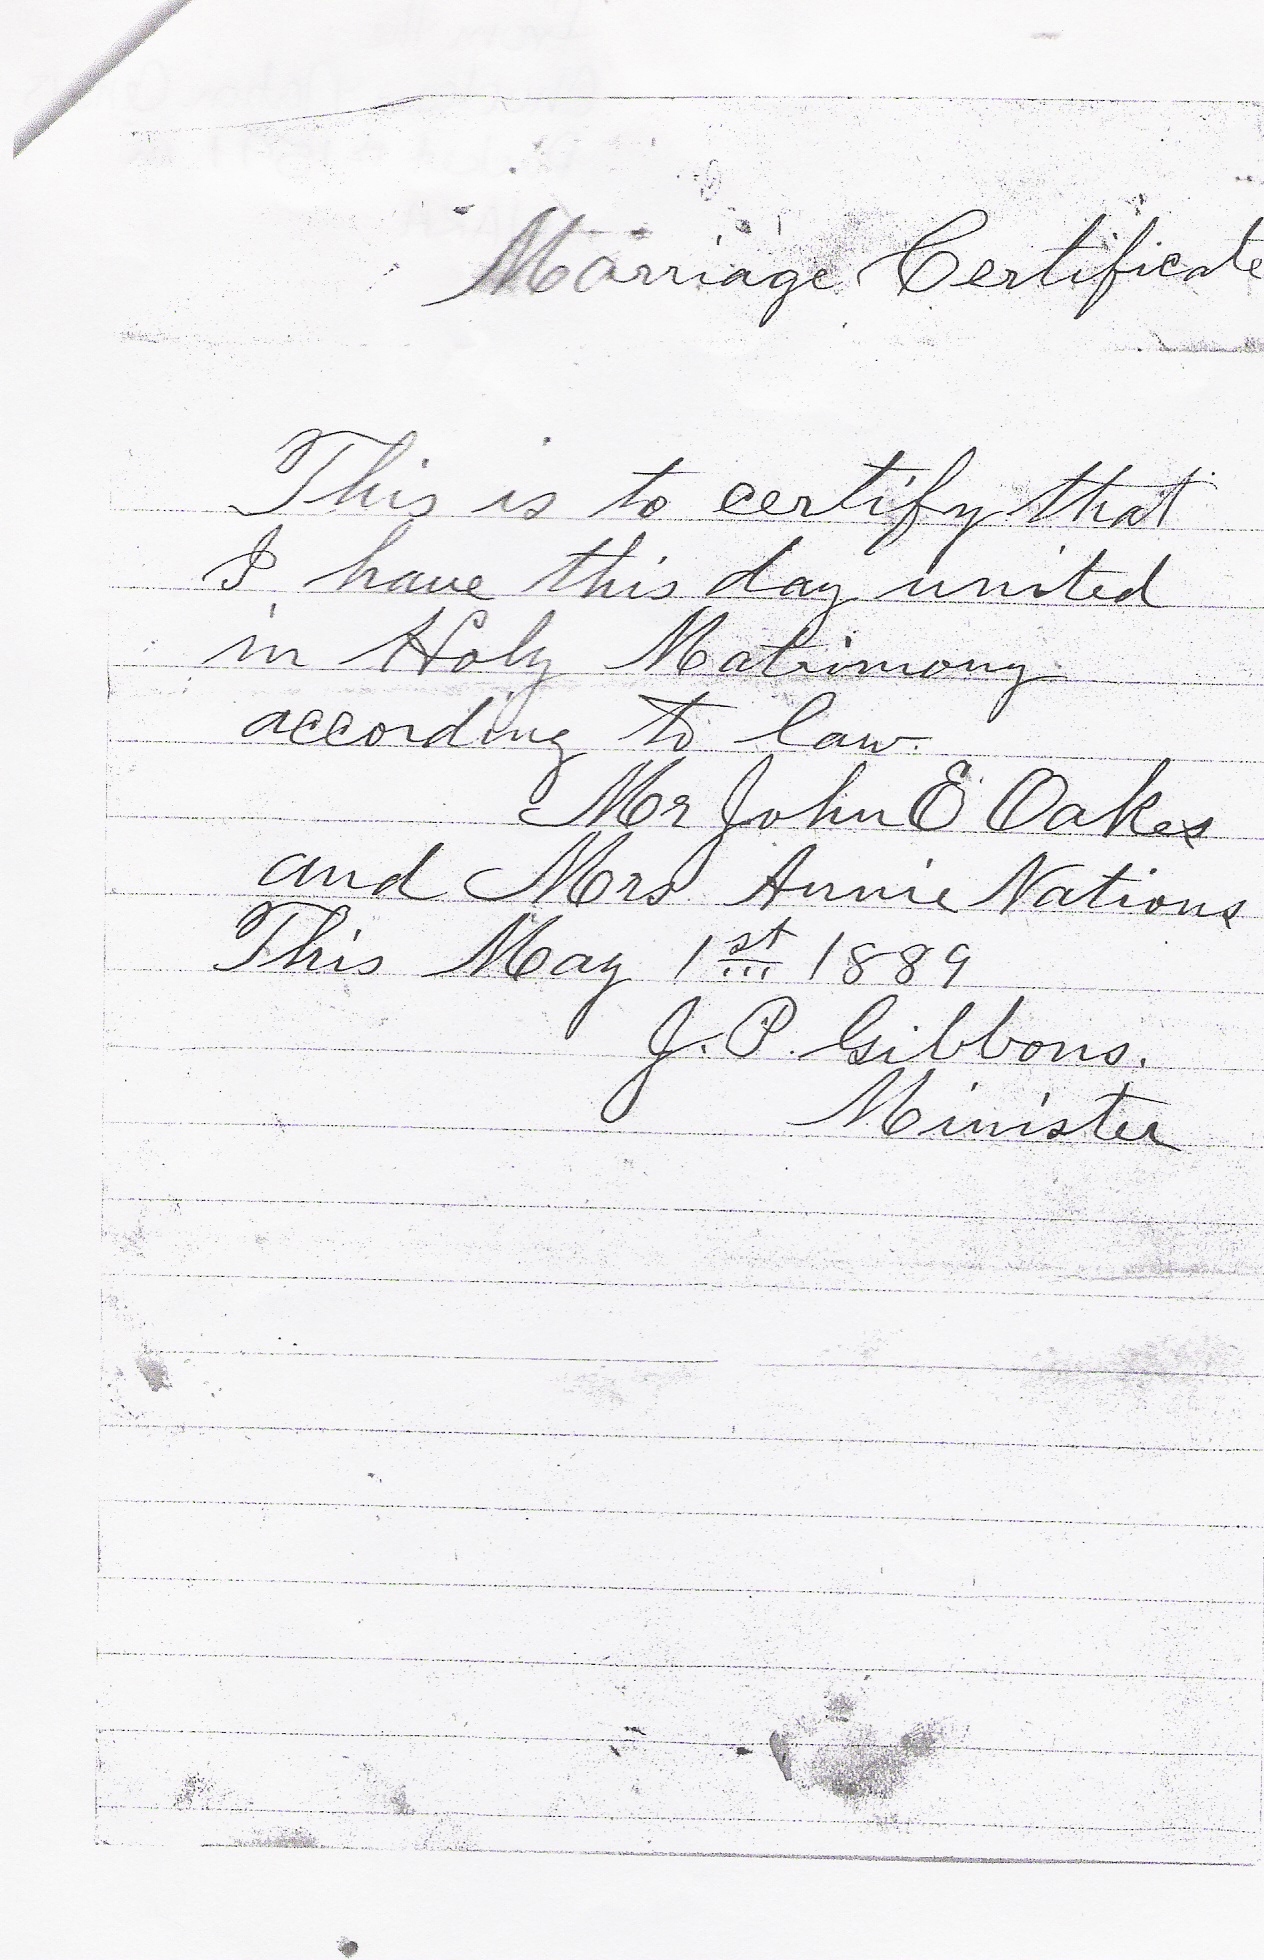 Marriage Certificate
This is to certify that
I have this day united
in Holy Matrimony
according to law.
Mr John E Oakes
and Mrs Annie Nations
This May 1st 1889
J. P. Gibbons.
Minister